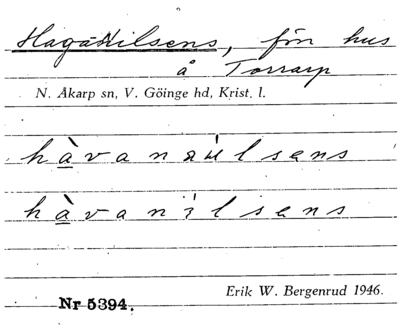 Haga-Nilsens, förr hus
å Torrarp
N. Åkarp sn, V. Göinge hd, Krist. l.
hàvanìlsens
Erik W. Bergenrud 1946.
Nr 5394.